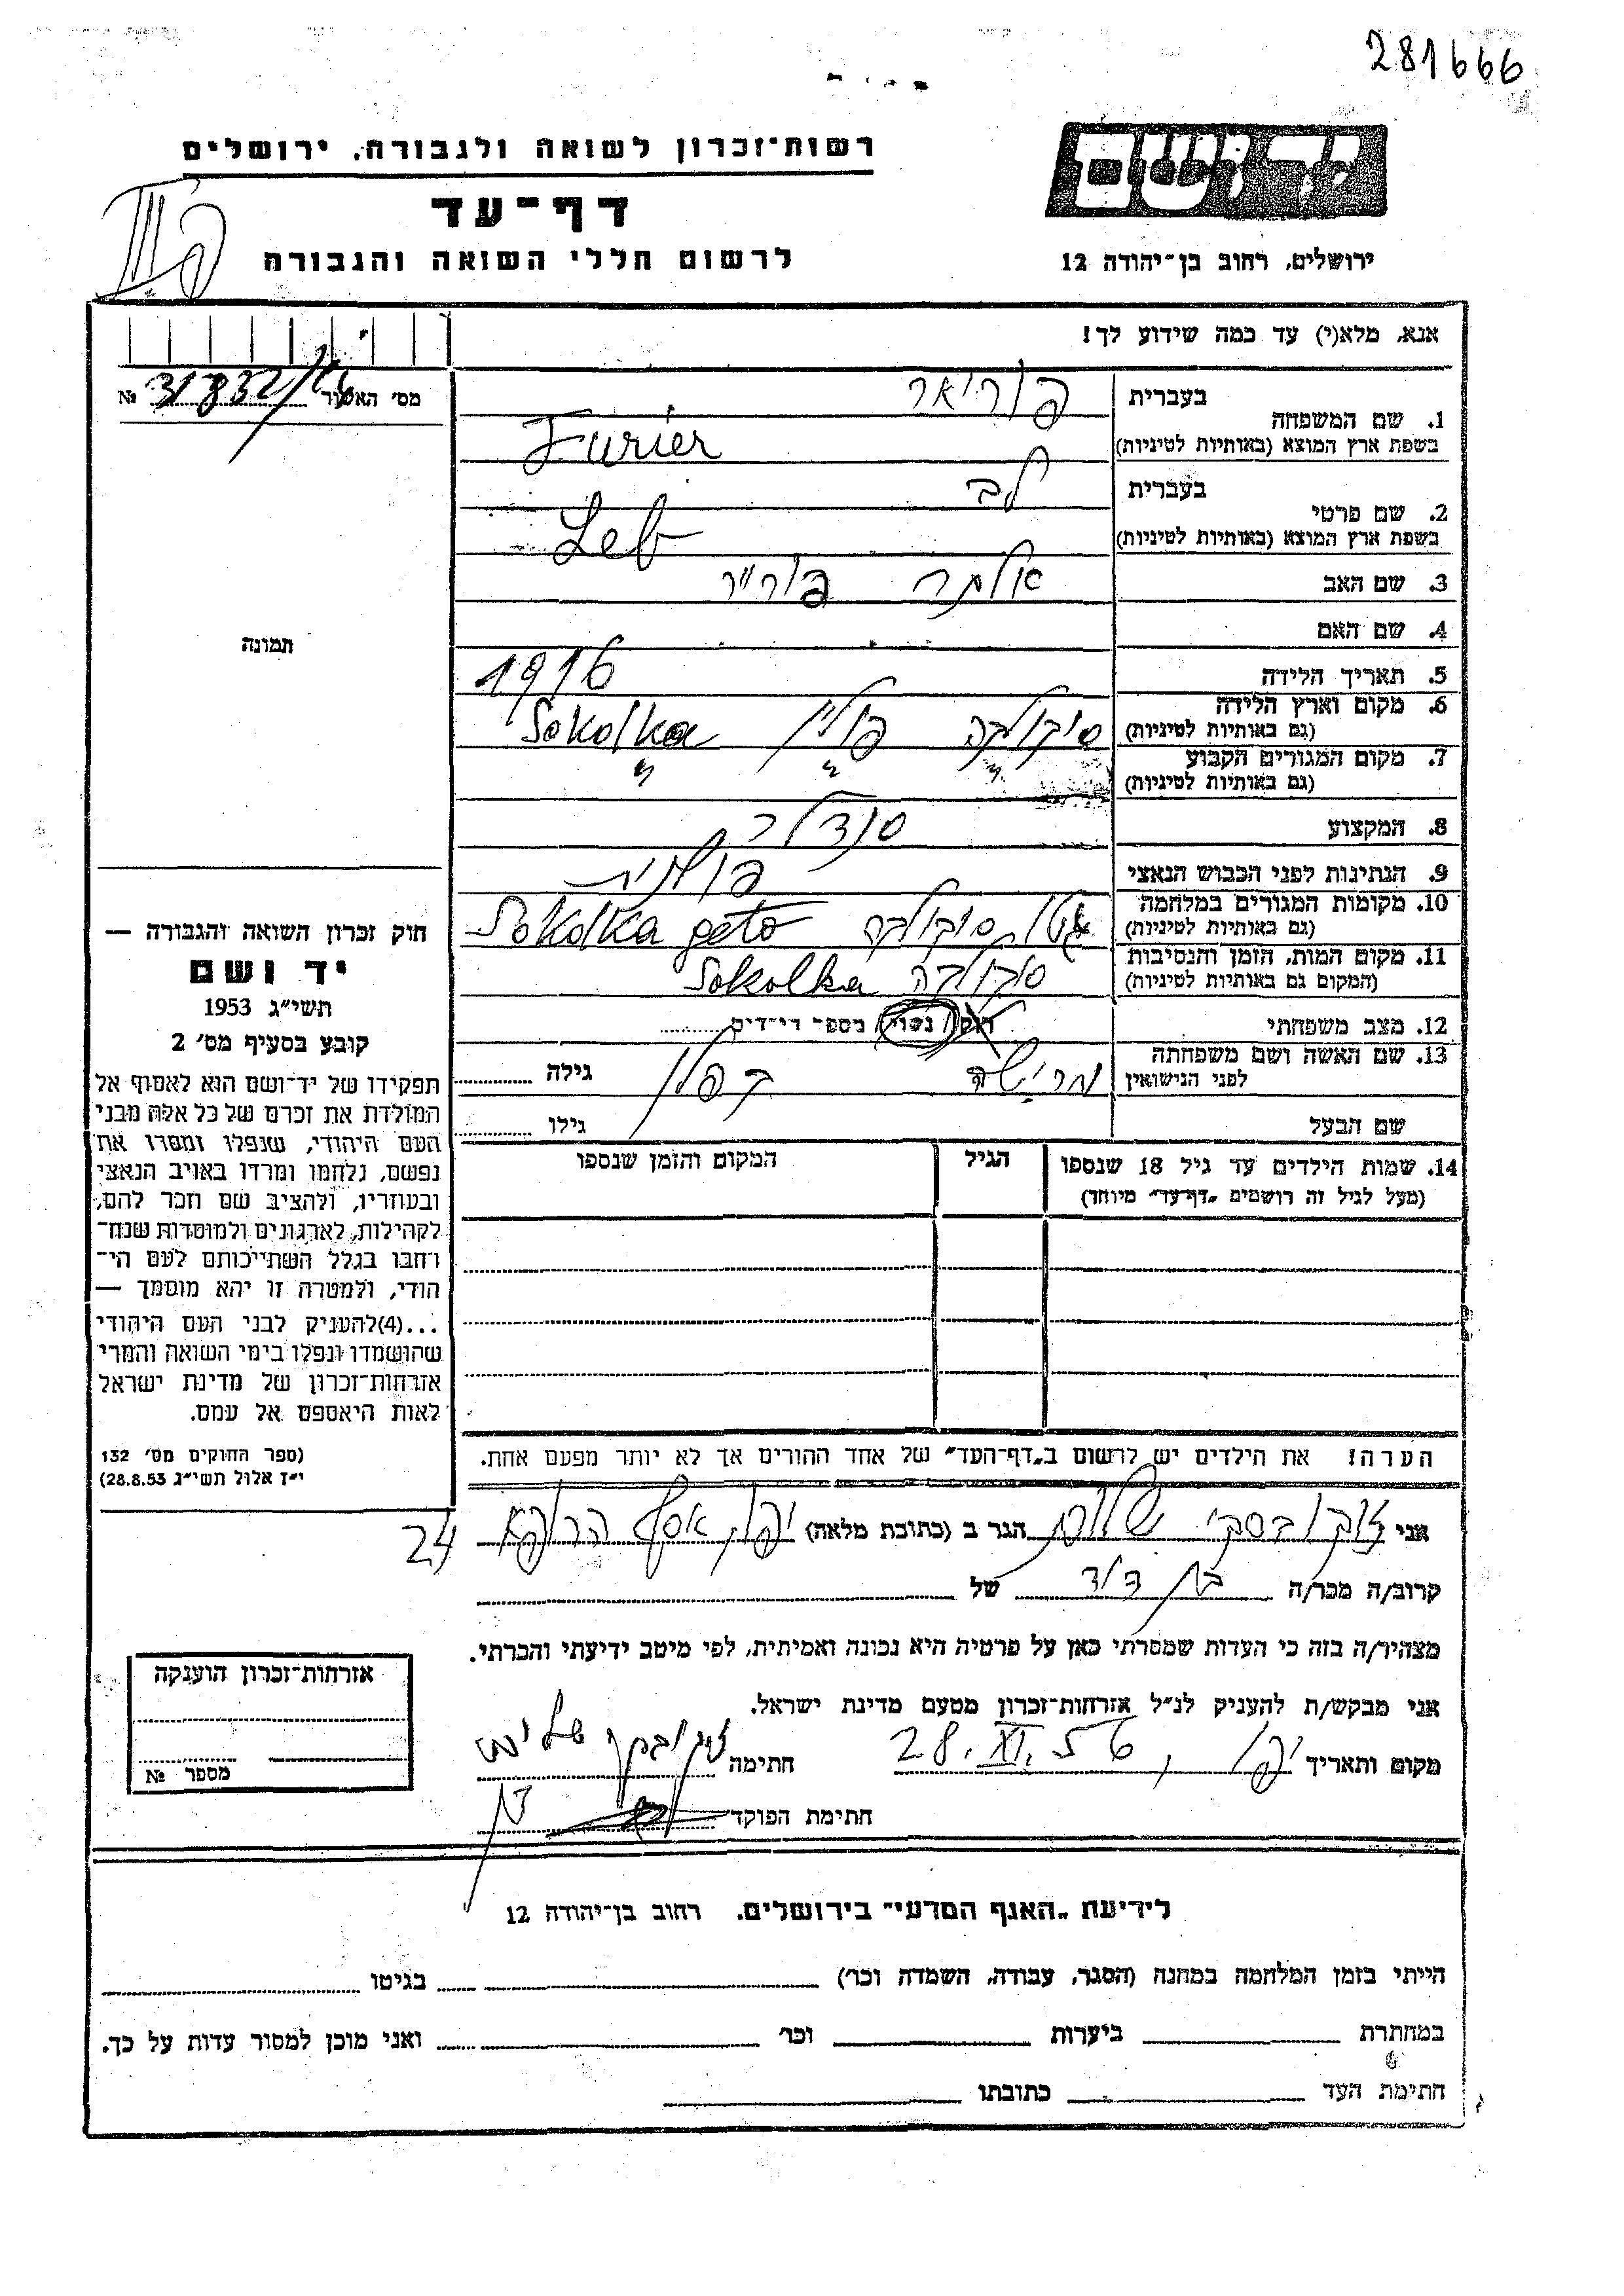 281666
יד ושם
ירושלים, רחוב בן־יהודה 12
רשות־זכרון לשואה ולגבורה, ירושלים
דף־עד
לרשום חללי השואה והגבורה
אנא, מלא(י) עד כמה שידוע לך!
מס' האשור № 31832/
בעברית פוריאר
1. שם המשפחה
בשפת ארץ המוצא (באותיות לטיניות) Furier
בעברית לב
2. שם פרטי
בשפת ארץ המוצא (באותיות לטיניות) Leb
3. שם האב אלתר פורייר
4. שם האם
5. תאריך הלידה 1916
6. מקום וארץ הלידה
(גם באותיות לטיניות) סוקולקה פולין Sokolka
7. מקום המגורים הקבוע
(גם באותיות לטיניות) " " "
8. המקצוע סנדלר
9. הנתינות לפני הכבוש הנאצי פולנית
10. מקומות המגורים במלחמה
(גם באותיות לטיניות) גטו סוקולקה Sokolka geto
11. מקום המות, הזמן והנסיבות
(המקום גם באותיות לטיניות) סוקולקה Sokolka
12. מצב משפחתי רוק/ נשוי/ מספר הילדים
13. שם האשה ושם משפחתה
לפני הנישואין גילה
שם הבעל גילו
14. שמות הילדים עד גיל 18 שנספו
(מעל לגיל זה רושמים "דף־עד" מיוחד)
הגיל
המקום והזמן שנספו
הערה! את הילדים יש לרשום ב"דף־העד" של אחד ההורים אך לא יותר מפעם אחת.
תמונה
חוק זכרון השואה והגבורה —
יד ושם
תשי"ג 1953
קובע בסעיף מס' 2
תפקידו של יד־ושם הוא לאסוף אל
המולדת את זכרם של כל אלה מבני
העם היהודי, שנפלו ומסרו את
נפשם, נלחמו ומרדו באויב הנאצי
ובעוזריו, ולהציב שם וזכר להם,
לקהילות, לארגונים ולמוסדות שנח־
רחבו בגלל השתייכותם לעם הי־
הודי, ולמטרה זו יהא מוסמך —
...(4)להעניק לבני העם היהודי
שהושמדו ונפלו בימי השואה והמרי
אזרחות־זכרון של מדינת ישראל
לאות היאספם אל עמם.
(ספר החוקים מס' 132
י"ז אלול תשי"ג 28.8.53)
אני שלום הגר ב (כתובת מלאה) יפו, אסף הרופא 24
קרוב/ה מכר/ה בן דוד של
מצהיר/ה בזה כי העדות שמסרתי כאן על פרטיה היא נכונה ואמיתית, לפי מיטב ידיעתי והכרתי.
אני מבקש/ת להעניק לנ"ל אזרחות־זכרון מטעם מדינת ישראל.
מקום ותאריך יפו, 28.XI.56 חתימה
חתימת הפוקד
אזרחות־זכרון הוענקה
מספר №
לידיעת "האגף המדעי" בירושלים. רחוב בן־יהודה 12
הייתי בזמן המלחמה במחנה (הסגר, עבודה, השמדה וכר') בגיטו
במחתרת ביערות וכר' ואני מוכן למסור עדות על כך.
חתימת העד כתובתו